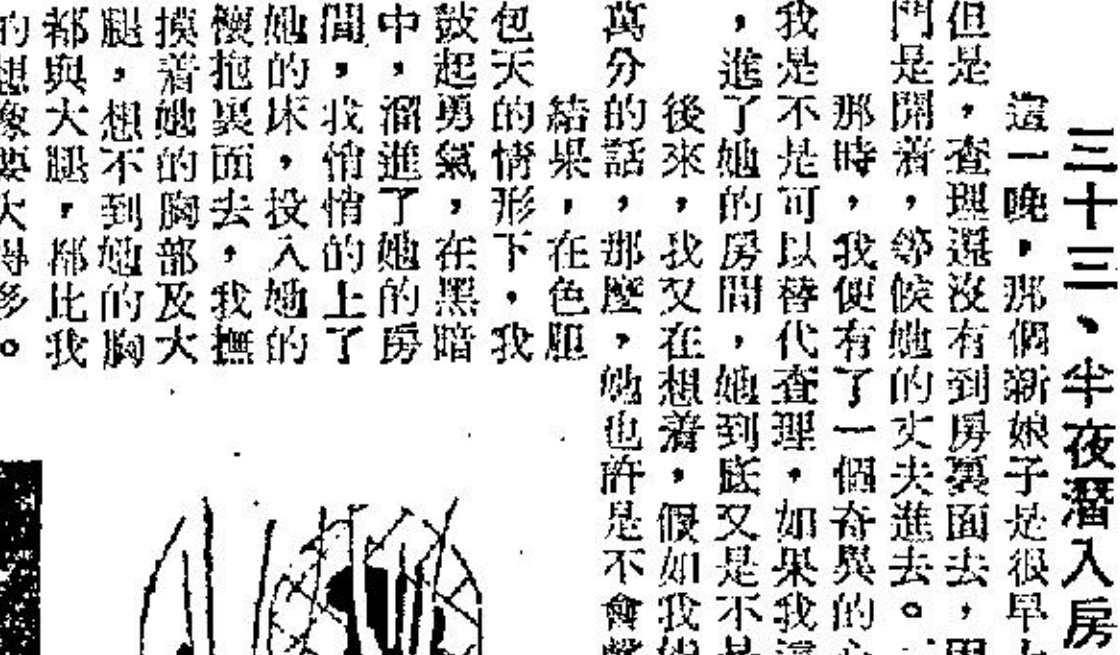 三十三、半夜潛入房
這一晚，那個新娘子是很早
但是，查理還沒有到房裏面去，因
門是開着，等候她的丈夫進去。
那時，我便有了一個奇異的心
我是不是可以替代查理，如果我這
，進了她的房間，她到底又是不是
後來，我又在想着，假如我
萬分的話，那麽，她也許是不會
結果，在色胆
包天的情形下，我
鼓起勇氣，在黑暗
中，溜進了她的房
間，我悄悄的上了
她的床，投入她的
懷抱裏面去，我撫
摸着她的胸部及大
腿，想不到她的胸
部與大腿，都比我
的想象要大得多。